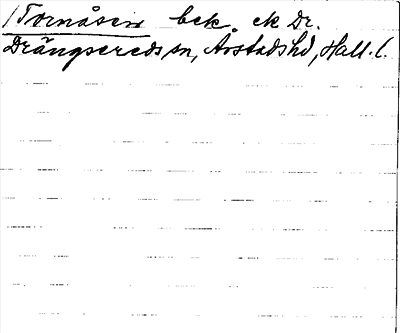 /Tornåsen bek. ek Dr.
Drängsereds sn, Årstads hd, Hall. l.